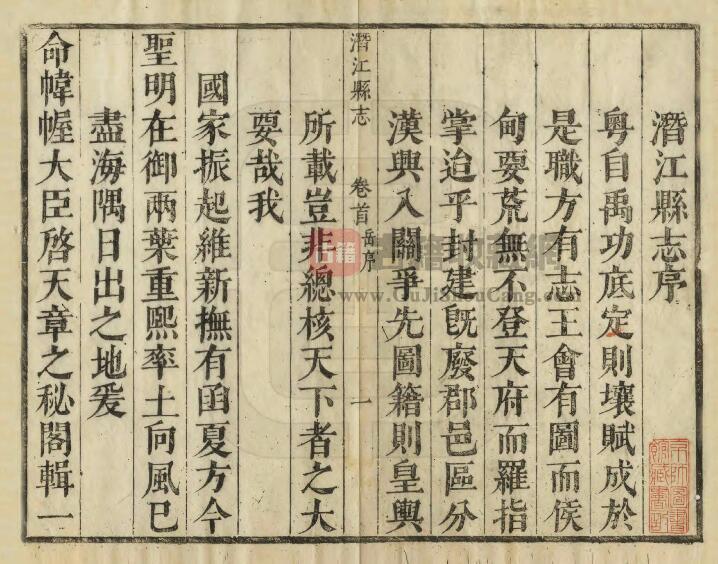 潛江縣志序
粵自禹功底定則壤賦成於
是職方有志王會有圖而侯
甸要荒無不登天府而羅指
掌迨乎封建既廢郡邑區分
漢興入關爭先圖籍則皇輿
所載豈非總核天下者之大
要哉我
國家振起維新撫有函夏方今
聖明在御兩葉重熙率土向風已
盡海隅日出之地爰
命幃幄大臣啓天章之秘閣輯一
潛江縣志 卷首 岳序 一
古籍收藏網
www.GuJiShouCang.com